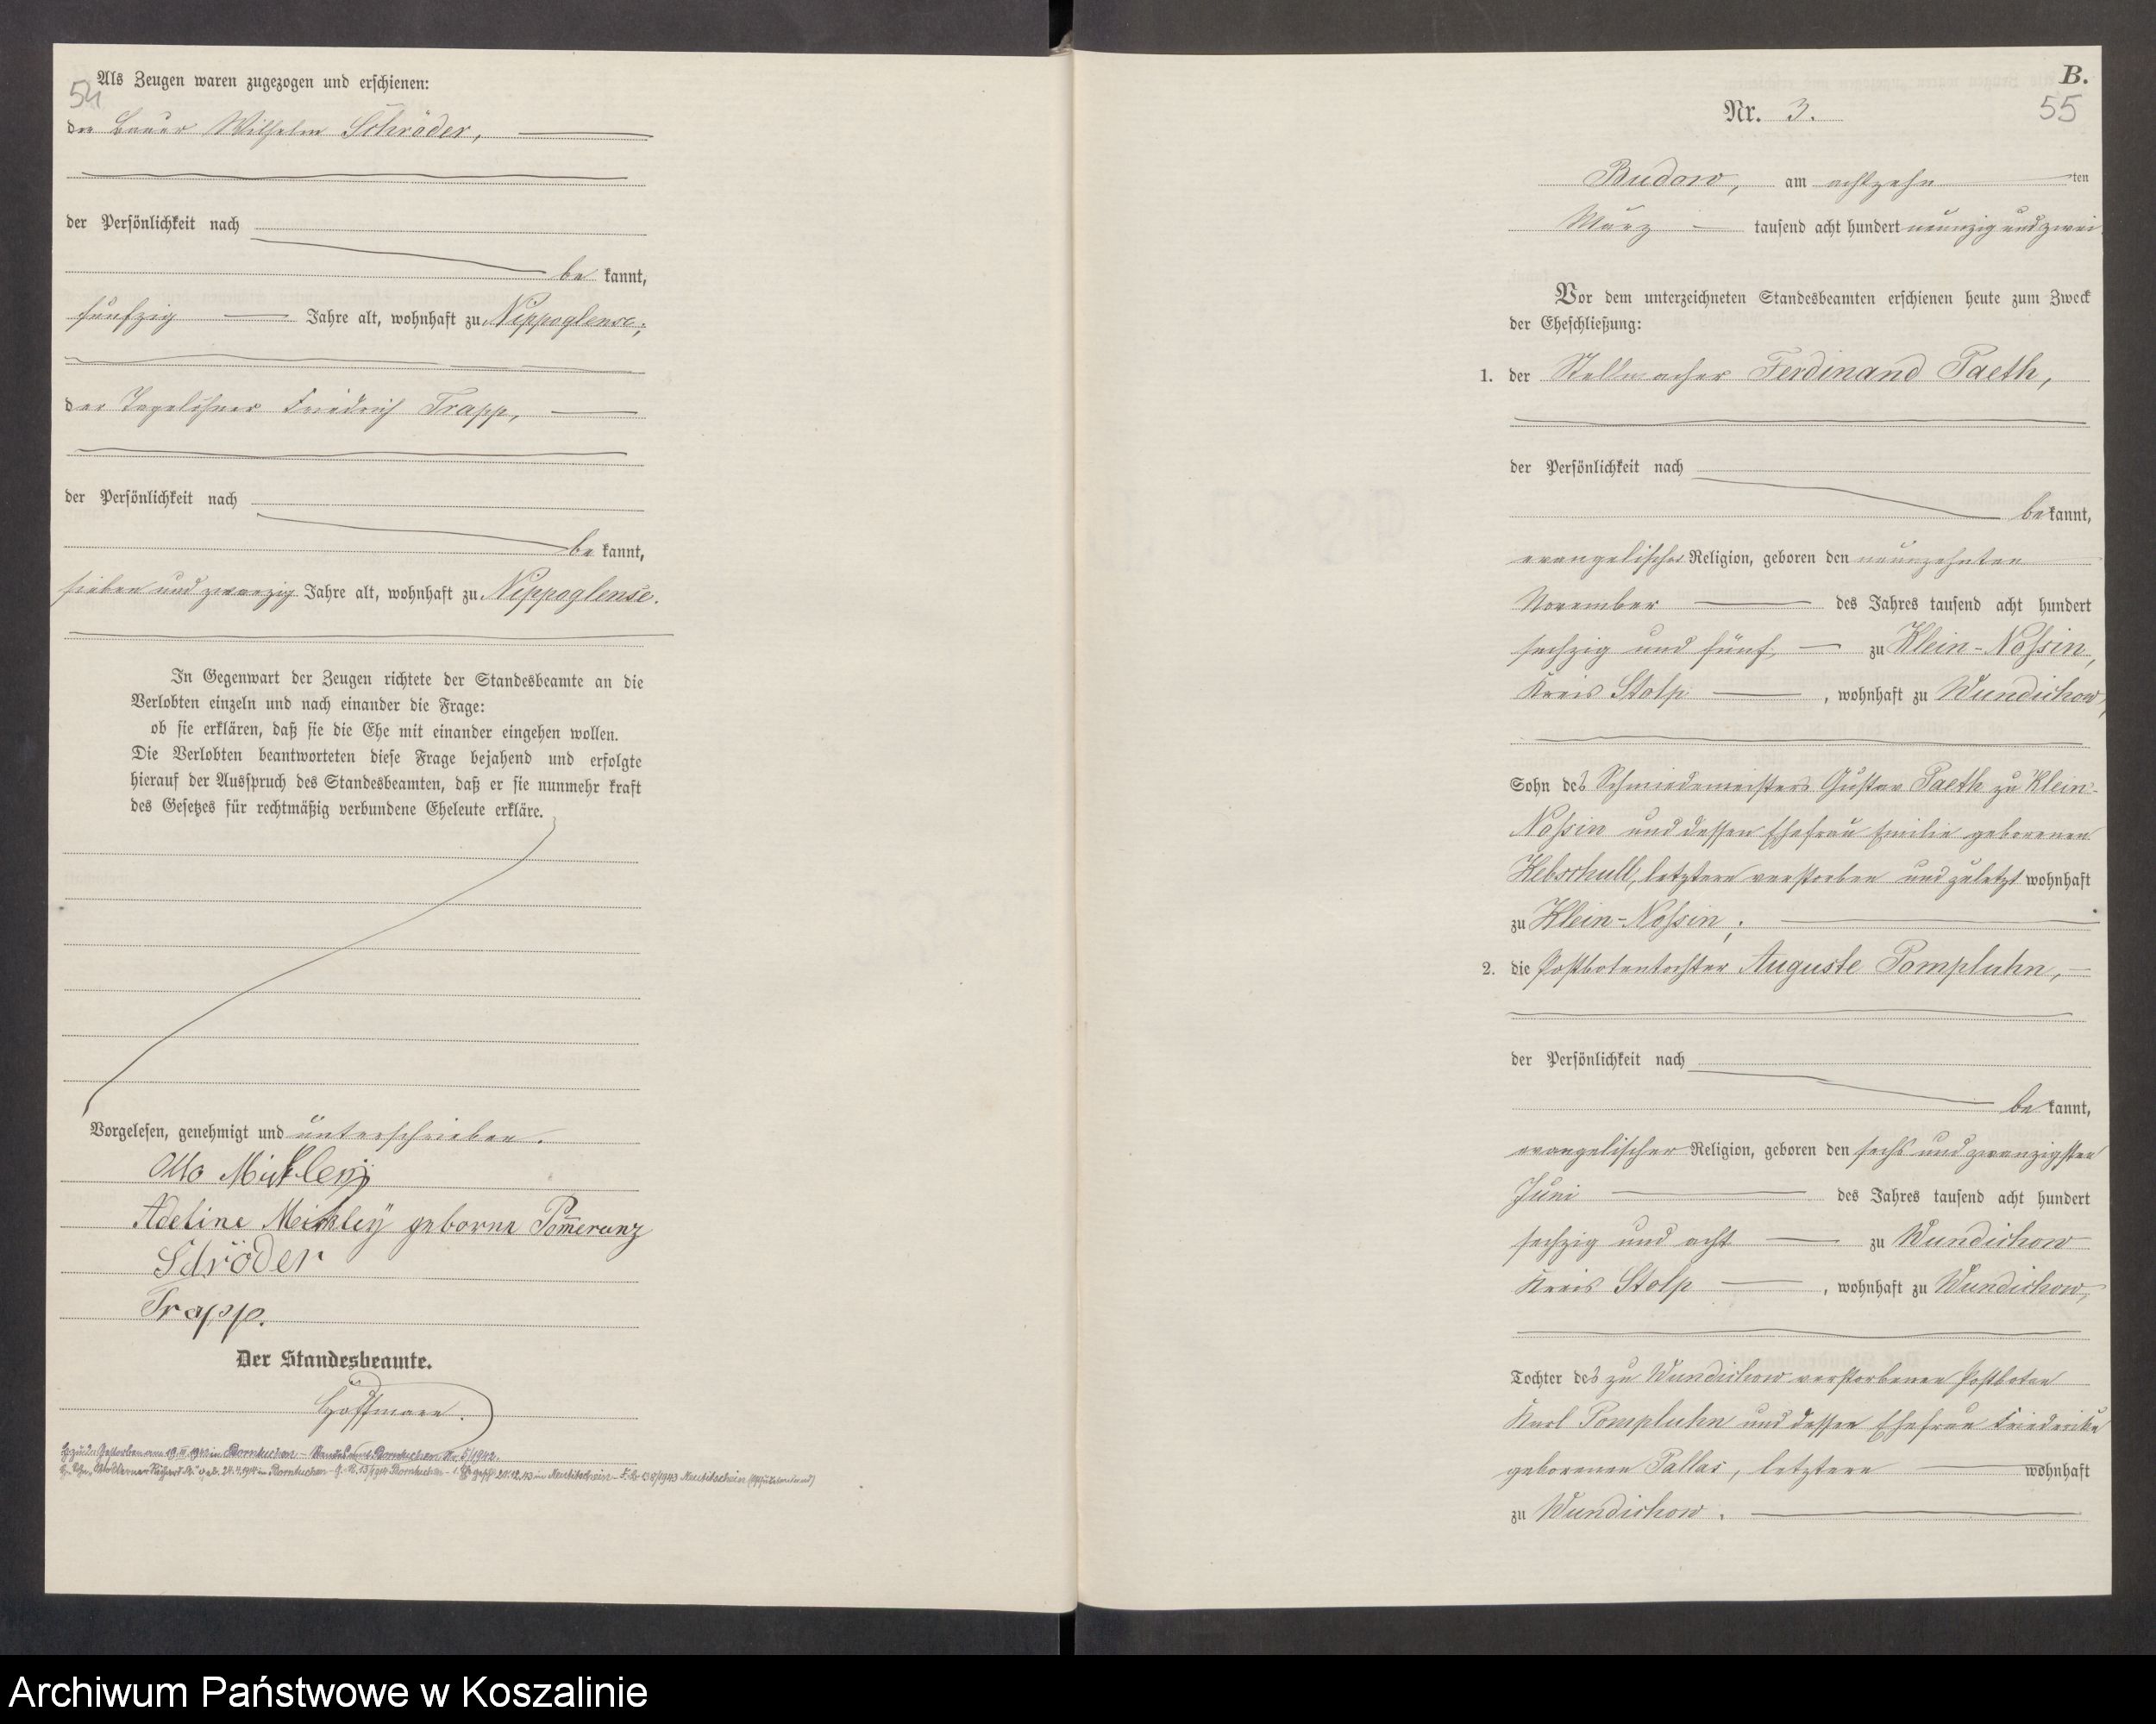 54
Als Zeugen waren zugezogen und erschienen:
der Bauer Wilhelm Schröder,
der Persönlichkeit nach
be kannt,
fünfzig Jahre alt, wohnhaft zu Nippoglense;
der Tagelöhner Friedrich Trapp,
der Persönlichkeit nach
be kannt,
sieben und zwanzig Jahre alt, wohnhaft zu Nippoglense.
In Gegenwart der Zeugen richtete der Standesbeamte an die
Verlobten einzeln und nach einander die Frage:
ob sie erklären, daß sie die Ehe mit einander eingehen wollen.
Die Verlobten beantworteten diese Frage bejahend und erfolgte
hierauf der Ausspruch des Standesbeamten, daß er sie nunmehr kraft
des Gesetzes für rechtmäßig verbundene Eheleute erkläre.
Vorgelesen, genehmigt und unterschrieben.
Otto Mickley
Adeline Mickley geborne Pomeranz
Schröder
Trapp.
Der Standesbeamte.
Hoffmann.
gestorben am 19. 1942 in Borntuchen – Standesamt Borntuchen Nr. 5/1942.
geb. 24.4.1914 in Borntuchen – Borntuchen – in Neutitschein – 138/1943 Neutitschein
B.
55
Nr. 3.
Budow, am achtzehn ten
März tausend acht hundert neunzig und zwei
Vor dem unterzeichneten Standesbeamten erschienen heute zum Zweck
der Eheschließung:
1. der Stellmacher Ferdinand Paeth,
der Persönlichkeit nach
be kannt,
evangelischer Religion, geboren den neunzehnten
November des Jahres tausend acht hundert
sechzig und fünf zu Klein-Nossin,
Kreis Stolp, wohnhaft zu Wundichow,
Sohn des Schmiedemeisters Gustav Paeth zu Klein-
Nossin und dessen Ehefrau Emilie geborenen
Kebschull, letztere verstorben und zuletzt wohnhaft
zu Klein-Nossin;
2. die Postbotentochter Auguste Pompluhn,
der Persönlichkeit nach
be kannt,
evangelischer Religion, geboren den sechs und zwanzigsten
Juni des Jahres tausend acht hundert
sechzig und acht zu Wundichow
Kreis Stolp, wohnhaft zu Wundichow,
Tochter des zu Wundichow verstorbenen Postboten
Karl Pompluhn und dessen Ehefrau Friederike
geborenen Pallas, letztere wohnhaft
zu Wundichow.
Archiwum Państwowe w Koszalinie